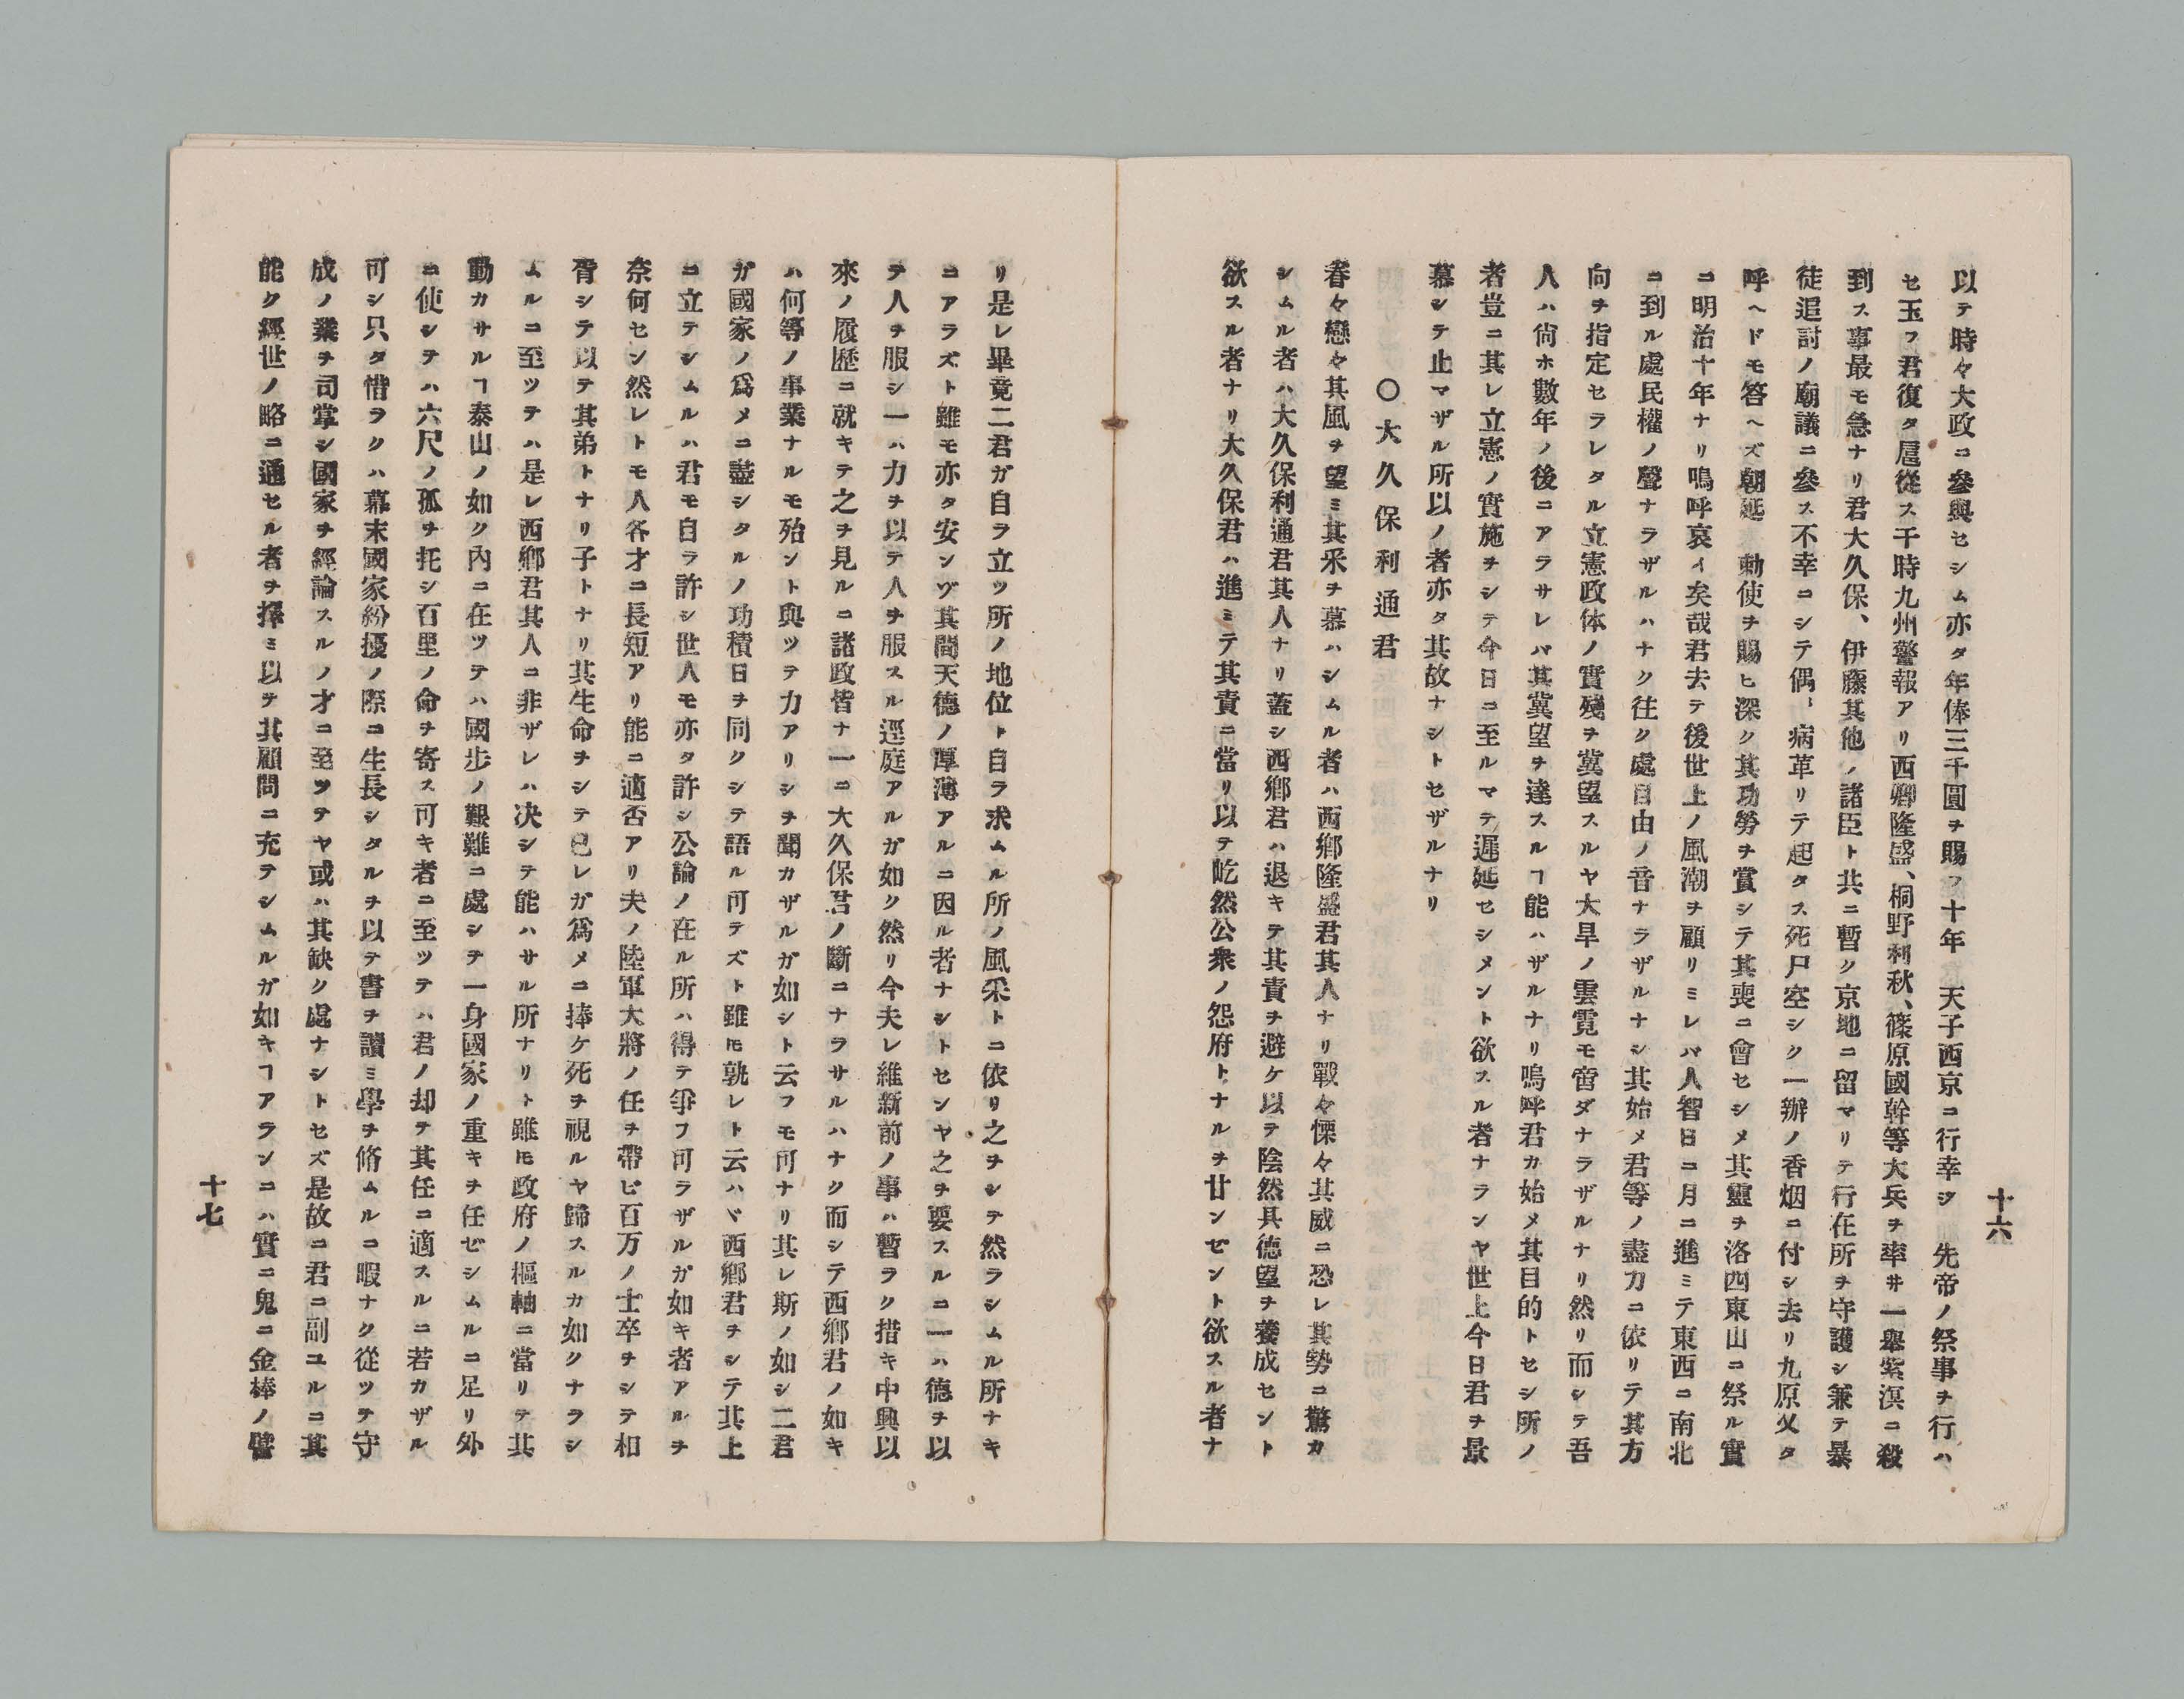 十六
以テ時々大政ニ參與セシム亦タ年俸三千圓ヲ賜フ十年　天子西京ニ行幸シ　先帝ノ祭事ヲ行ハ
セ玉フ君復タ扈從ス于時九州警報アリ西郷隆盛、桐野利秋、篠原國幹等大兵ヲ率ヰ一擧紫溟ニ殺
到ス事最モ急ナリ君大久保、伊藤其他ノ諸臣ト共ニ暫ク京地ニ留マリテ行在所ヲ守護シ兼テ暴
徒追討ノ廟議ニ參ス不幸ニシテ偶〻病革リテ起タス死尸空シク一瓣ノ香烟ニ付シ去リ九原又タ
呼ヘドモ答ヘズ朝廷　勅使ヲ賜ヒ深ク其功勞ヲ賞シテ其喪ニ會セシメ其靈ヲ洛西東山ニ祭ル實
ニ明治十年ナリ嗚呼哀イ矣哉君去テ後世上ノ風潮ヲ顧リミレバ人智日ニ月ニ進ミテ東西ニ南北
ニ到ル處民權ノ聲ナラザルハナク往ク處自由ノ音ナラザルナシ其始メ君等ノ盡力ニ依リテ其方
向ヲ指定セラレタル立憲政体ノ實殘ヲ冀望スルヤ大旱ノ雲霓モ啻ダナラザルナリ然リ而シテ吾
人ハ尙ホ數年ノ後ニアラサレバ其冀望ヲ達スルヿ能ハザルナリ嗚呼君カ始メ其目的トセシ所ノ
者豈ニ其レ立憲ノ實施ヲシテ今日ニ至ルマテ遲延セシメント欲スル者ナランヤ世上今日君ヲ景
慕シテ止マザル所以ノ者亦タ其故ナシトセザルナリ
〇大久保利通君
眷々戀々其風ヲ望ミ其采ヲ慕ハシムル者ハ西郷隆盛君其人ナリ戰々慄々其威ニ恐レ其勢ニ驚カ
シムル者ハ大久保利通君其人ナリ蓋シ西郷君ハ退キテ其責ヲ避ケ以テ陰然具德望ヲ養成セント
欲スル者ナリ大久保君ハ進ミテ其責ニ當リ以テ屹然公衆ノ怨府トナルヲ甘ンゼント欲スル者ナ
リ是レ畢竟二君ガ自ラ立ツ所ノ地位ト自ラ求ムル所ノ風采トニ依リ之ヲシテ然ラシムル所ナキ
ニアラズト雖モ亦タ安ンヅ其間天德ノ厚薄アルニ因ル者ナシトセンヤ之ヲ要スルニ一ハ德ヲ以
テ人ヲ服シ一ハ力ヲ以テ人ヲ服スル逕庭アルガ如ク然リ今夫レ維新前ノ事ハ暫ラク措キ中興以
來ノ履歷ニ就キテ之ヲ見ルニ諸政皆ナ一ニ大久保君ノ斷ニナラサルハナク而シテ西郷君ノ如キ
ハ何等ノ事業ナルモ殆ント與ツテ力アリシヲ聞カザルガ如シト云フモ可ナリ其レ斯ノ如シ二君
ガ國家ノ爲メニ盡シタルノ功積日ヲ同クシテ語ル可テズト雖𪜈孰レト云ハヾ西郷君ヲシテ其上
ニ立テシムルハ君モ自ラ許シ世人モ亦タ許シ公論ノ在ル所ハ得テ爭フ可ラザルガ如キ者アルヲ
奈何セン然レトモ人各才ニ長短アリ能ニ適否アリ夫ノ陸軍大將ノ任ヲ帶ビ百万ノ士卒ヲシテ相
胥シテ以テ其弟トナリ子トナリ其生命ヲシテ已レガ爲メニ捧ケ死ヲ視ルヤ歸スルカ如クナラシ
ムルニ至ツテハ是レ西郷君其人ニ非ザレハ决シテ能ハサル所ナリト雖𪜈政府ノ樞軸ニ當リテ其
動カサルヿ泰山ノ如ク內ニ在ツテハ國步ノ艱難ニ處シテ一身國家ノ重キヲ任ゼシムルニ足リ外
ニ使シテハ六尺ノ孤ヲ托シ百里ノ命ヲ寄ス可キ者ニ至ツテハ君ノ却テ其任ニ適スルニ若カザル
可シ只タ惜ヲクハ幕末國家紛擾ノ際ニ生長シタルヲ以テ書ヲ讀ミ學ヲ脩ムルニ暇ナク從ツテ守
成ノ業ヲ司掌シ國家ヲ經論スルノ才ニ至ツテヤ或ハ其缺ク處ナシトセズ是故ニ君ニ副ユルニ其
能ク經世ノ略ニ通セル者ヲ擇ミ以テ其顧問ニ充テシムルガ如キヿアランニハ實ニ鬼ニ金棒ノ譬
十七